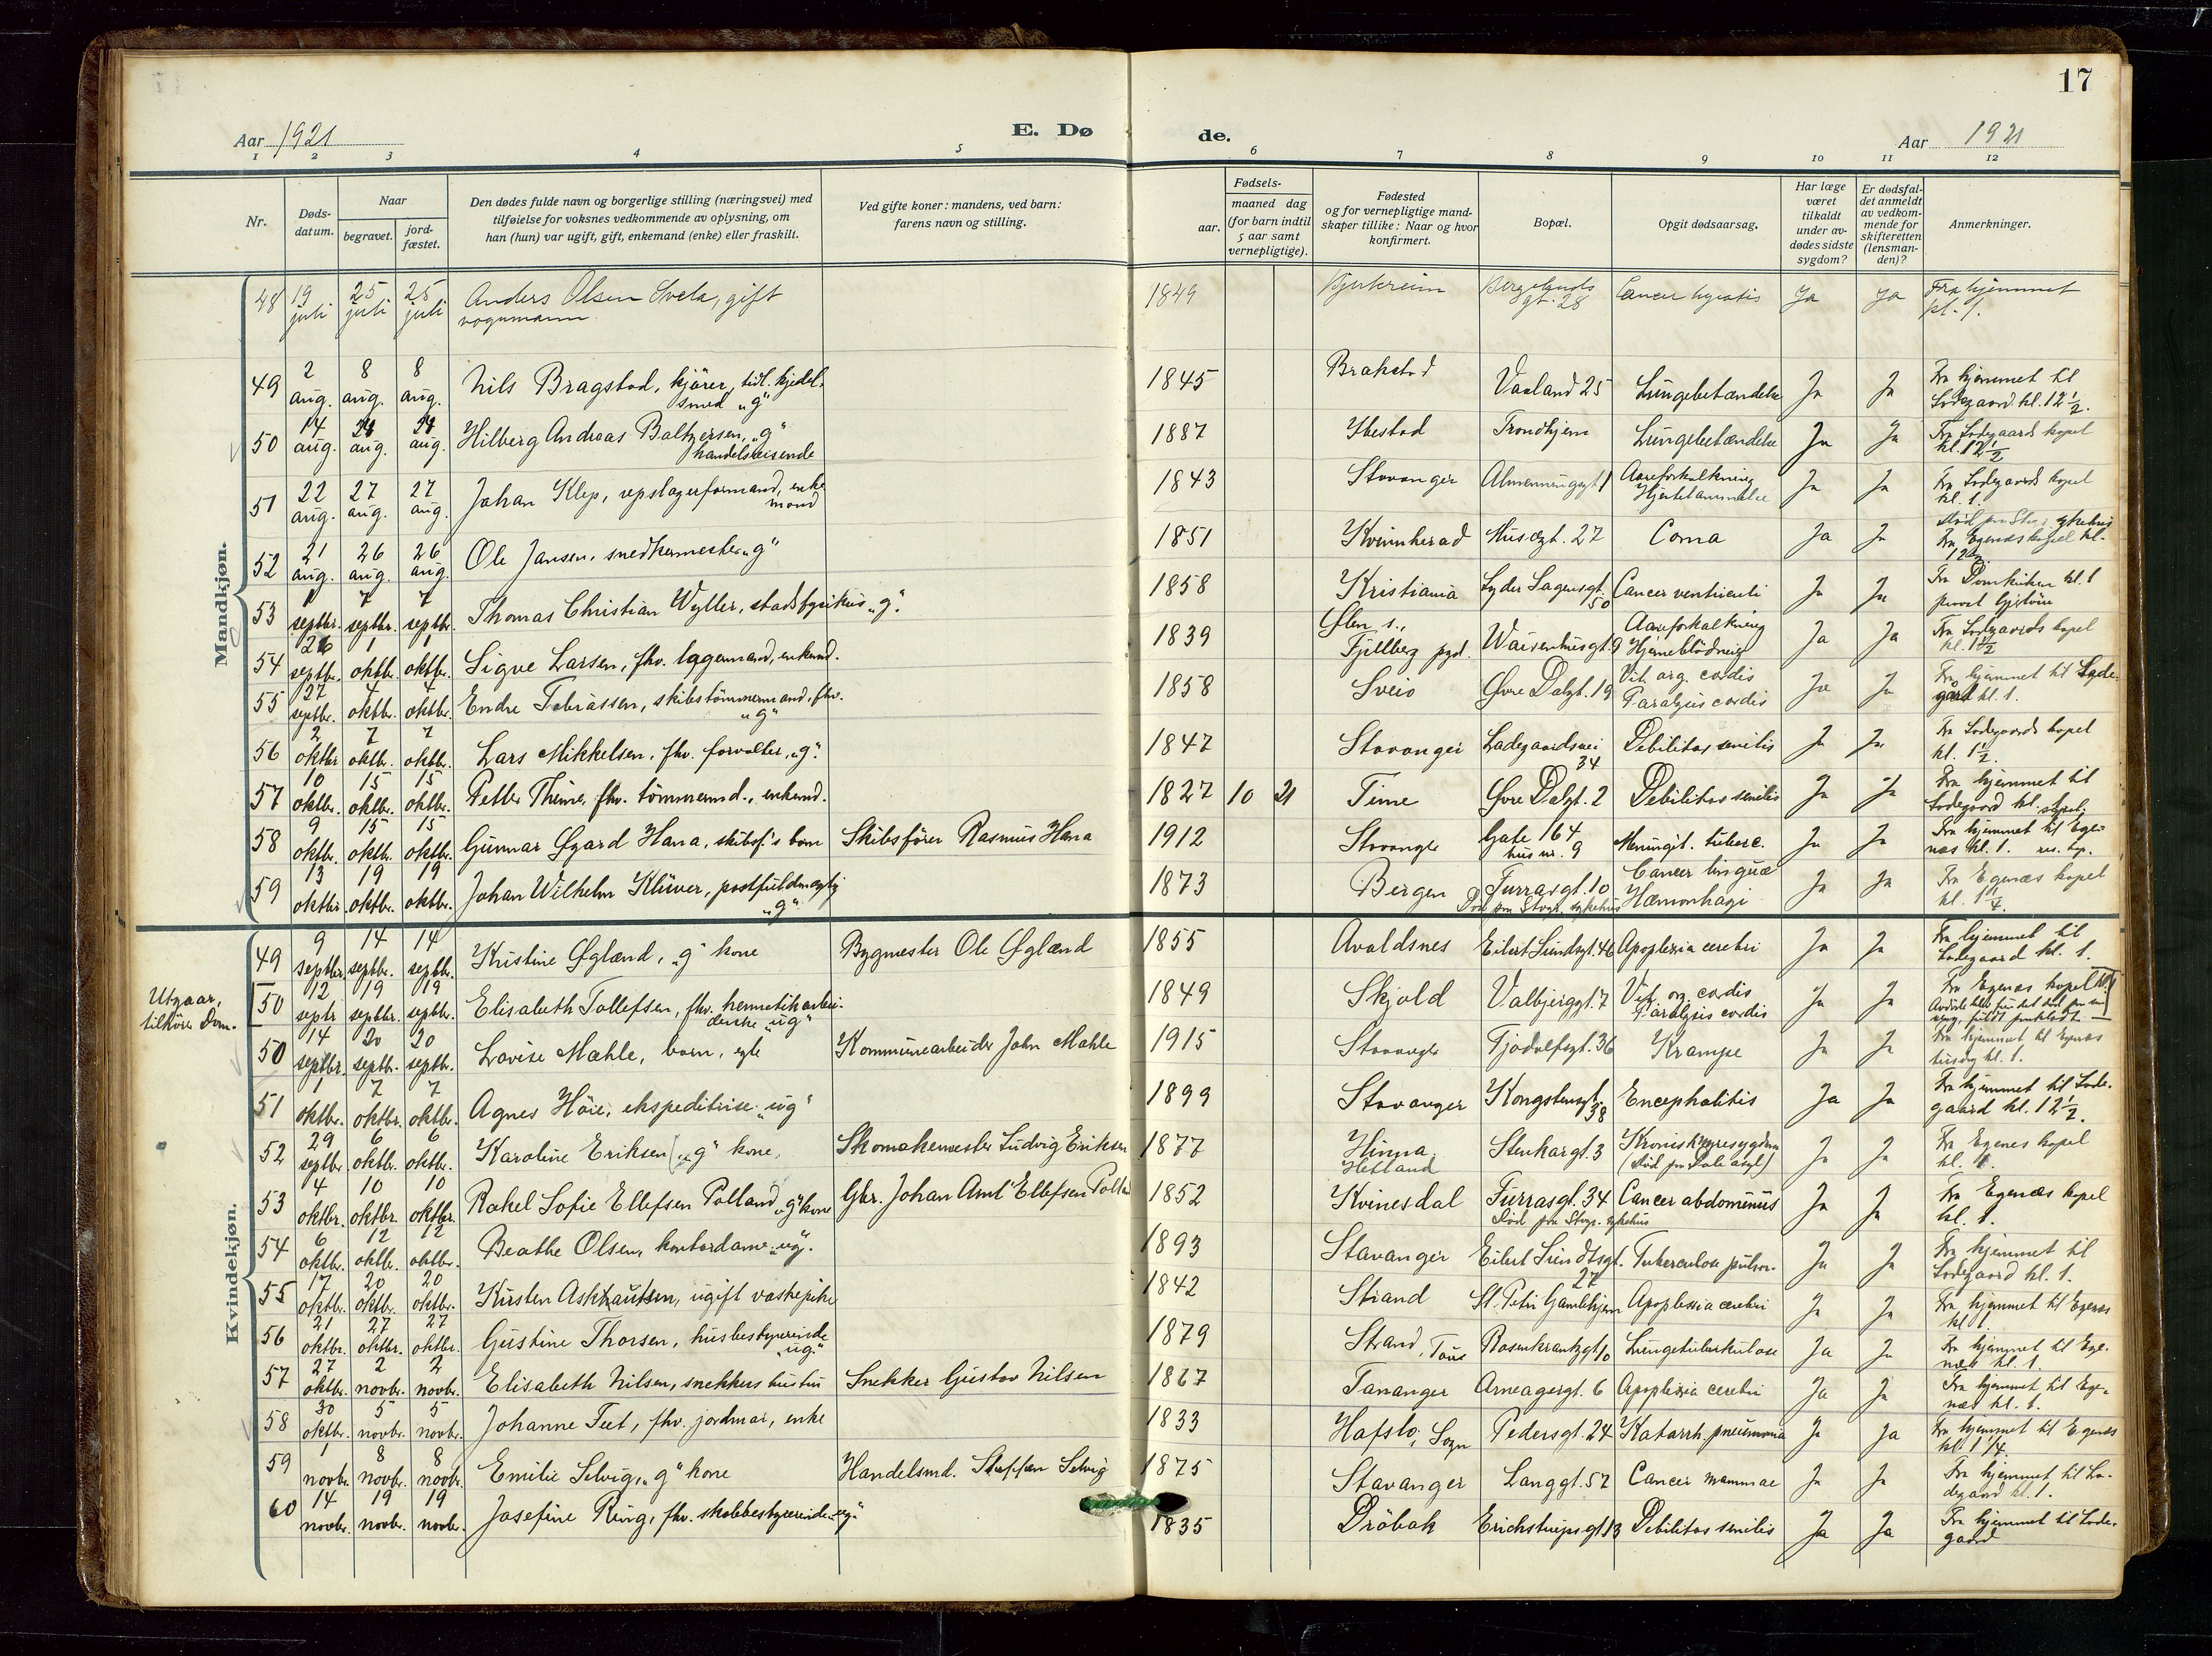 17
Aar 1921
E. Døde.
Aar 1921
1 2 3 4 5 6 7 8 9 10 11 12
Nr. | Døds-datum. | Naar begravet. | Naar jord-fæstet. | Den dødes fulde navn og borgerlige stilling (næringsvei) med tilføielse for voksnes vedkommende av oplysning, om han (hun) var ugift, gift, enkemand (enke) eller fraskilt. | Ved gifte koner: mandens, ved barn: farens navn og stilling. | Fødsels- aar. maaned dag (for barn indtil 5 aar samt vernepligtige). | Fødested og for vernepligtige mand-skaper tillike: Naar og hvor konfirmert. | Bopæl. | Opgit dødsaarsag. | Har læge været tilkaldt under av-dødes sidste sygdom? | Er dødsfal-det anmeldt av vedkom-mende for skifteretten (lensman-den)? | Anmerkninger.
Mandkjøn.
48 | 19 juli | 25 juli | 25 juli | Anders Olsen Svela, gift vognmann | 1849 | Bjerkreim | Bergelands gt. 28 | Cancer | Ja | Ja | Fra hjemmet kl. 1.
49 | 2 aug. | 8 aug. | 8 aug. | Nils Bragstad, kjører, tidl. kjedel-smed "g" | 1845 | Brakstad | Vaaland 25 | Lungebetændelse | Ja | Ja | Fra hjemmet til Lodegaard kl. 12 1/2.
50 | 14 aug. | aug. | aug. | Hilberg Andreas Baltzersen, "g" handelsreisende | 1887 | Ibestad | Trondhjem | Lungebetændelse | Ja | Ja | Fra Lodegaards kapel kl. 12 1/2
51 | 22 aug. | 27 aug. | 27 aug. | Johan Klep, repslagerformand, enkemand | 1843 | Stavanger | Almenningsgt. 1 | Aareforkalkning Hjertelammelse | Ja | Ja | Fra Lodegaards kapel kl. 1.
52 | 21 aug. | 26 aug. | 26 aug. | Ole Jansen, snedkermester "g" | 1851 | Kvinnherad | Musægt. 27 | Coma | Ja | Ja | Død paa Stvg. sykehus Fra Egenæs kapel kl. 12
53 | 1 septbr. | 7 septbr. | 7 septbr. | Thomas Christian Wyller, stadsfysikus "g". | 1858 | Kristiania | Lyder Sagensgt. 50 | Cancer ventriculi | Ja | Ja | Fra Domkirken kl. 1
54 | 26 septbr. | 1 oktbr. | 1 oktbr. | Sigve Larsen, fhv. lagermand, enkemd. | 1839 | Ølen s., Fjellberg pgd. | Waisenhusgt. 9 | Aareforkalkning Hjerneblødning | Ja | Ja | Fra Lodegaards kapel kl. 1 1/2
55 | 27 septbr. | 4 oktbr. | 4 oktbr. | Endre Tobiassen, skibstømmermand, fhv. "g" | 1858 | Sveio | Øvre Dalgt. 19 | Vit. org. cordis Paralysis cordis | Ja | Ja | Fra hjemmet til Lode-gård kl. 1.
56 | 2 oktbr | 7 oktbr. | 7 oktbr. | Lars Mikkelsen, fhv. forvalter, "g". | 1847 | Stavanger | Ladegaardsvei 34 | Debilitas senilis | Ja | Ja | Fra Lodegaards kapel kl. 1 1/2.
57 | 10 oktbr. | 15 oktbr. | 15 oktbr. | Petter Thime, fhv. tømmermd., enkemd. | 1827 | 10 | 21 | Time | Øvre Dalgt. 2 | Debilitas senilis | Ja | Ja | Fra hjemmet til Lodegaard kl.
58 | 9 oktbr. | 15 oktbr. | 15 oktbr. | Gunnar Øgard Hana, skibsf.'s barn | Skibsfører Rasmus Hana | 1912 | Stavanger | Gate 164 hus nr. 9 | Meningit. tuberc. | Ja | Ja | Fra hjemmet til Ege-næs kl. 1. res. kap.
59 | 13 oktbr. | 19 oktbr. | 19 oktbr. | Johan Wilhelm Klüwer, postfuldmægtig "g" | 1873 | Bergen | Turrasgt. 10 Død paa Stvgr. sykehus | Cancer linguæ Hæmorrhagi | Ja | Ja | Fra Egenæs kapel kl. 1 1/4.
Kvindekjøn.
49 | 9 septbr. | 14 septbr. | 14 septbr. | Kristine Øglænd, "g" kone | Bygmester Ole Øglænd | 1855 | Avaldsnes | Eilert Sundsgt. 46 | Apoplexia cerebri | Ja | Ja | Fra hjemmet til Lodegaard kl. 1.
Utgaar, tilhører Dom.
50 | 12 septr | 19 septbr. | 19 septbr. | Elisabeth Tollefsen, fhv. hermetikarbei-derske "ug" | 1849 | Skjold | Valbjerggt. 7 | Vit. org. cordis Paralysis cordis | Ja | Ja | Fra Egenæs kapel
50 | 14 septbr. | 20 septbr. | 20 septbr. | Lovise Mæhle, barn, egte | Kommunearbeider John Mæhle | 1915 | Stavanger | Tjodolfsgt. 36 | Krampe | Ja | Ja | Fra hjemmet til Egenæs tirsdag kl. 1.
51 | 1 oktbr. | 7 oktbr. | 7 oktbr. | Agnes Høie, ekspeditrise "ug" | 1899 | Stavanger | Kongstensgt. 38 | Encephalitis | Ja | Ja | Fra hjemmet til Lode-gaard kl. 12 1/2.
52 | 29 septbr | 6 oktbr. | 6 oktbr. | Karoline Eriksen, "g" kone, | Skomakermester Ludvig Eriksen | 1877 | Hinna Hetland | Stenkargt. 3 | Kronisk nyresygdom (Død paa Dale asyl) | Ja | Ja | Fra Egenes kapel kl. 1.
53 | 4 oktbr. | 10 oktbr. | 10 oktbr. | Rakel Sofie Ellefsen Polland, "g" kone | Gbr. Johan Amt Ellefsen Polland | 1852 | Kvinesdal | Turrasgt. 34 Død paa Stvgr. sykehus | Cancer abdominus | Ja | Ja | Fra Egenæs kapel kl. 1.
54 | 6 oktbr. | 12 oktbr. | 12 oktbr. | Beathe Olsen, kontordame "ug". | 1893 | Stavanger | Eilert Sundtsgt. 27 | Tuberculose pulm. | Ja | Ja | Fra hjemmet til Lodegaard kl. 1.
55 | 17 oktbr. | 20 oktbr. | 20 oktbr. | Kirsten Askhautsen, ugift vaskepike | 1842 | Strand | St. Petri Gamlehjem | Apoplexia cerebri | Ja | Ja | Fra hjemmet til Egenæs kl 1.
56 | 21 oktbr. | 27 oktbr. | 27 oktbr. | Gustine Thorsen, husbestyrerinde "ug" | 1879 | Strand, Tau | Rosenkrantzgt 10 | Lungetuberkulose | Ja | Ja | Fra hjemmet til Ege-næs kl. 1.
57 | 27 oktbr. | 2 novbr. | 2 novbr. | Elisabeth Nilsen, snekkers hustru | Snekker Gustav Nilsen | 1867 | Tananger | Arneagergt. 6 | Apoplexia cerebri | Ja | Ja | Fra hjemmet til Ege-næs kl. 1.
58 | 30 oktbr. | 5 novbr. | 5 novbr. | Johanne Tut, fhv. jordmor, enke | 1833 | Hafslo, Sogn | Pedersgt. 24 | Katarrh. pneumonia | Ja | Ja | Fra hjemmet til Egenæs kl 1 1/4.
59 | 1 novbr. | 8 novbr. | 8 novbr. | Emilie Selvig, "g" kone | Handelsmd. Steffen Selvig | 1875 | Stavanger | Langgt. 57 | Cancer mammae | Ja | Ja | Fra hjemmet til La-degaard kl. 1.
60 | 14 novbr. | 19 novbr. | 19 novbr. | Josefine Ring, fhv. skolebestyrerinde "ug" | 1835 | Drøbak | Erichstrupsgt 13 | Debilitas senilis | Ja | Ja | Fra hjemmet til Lode-gaard